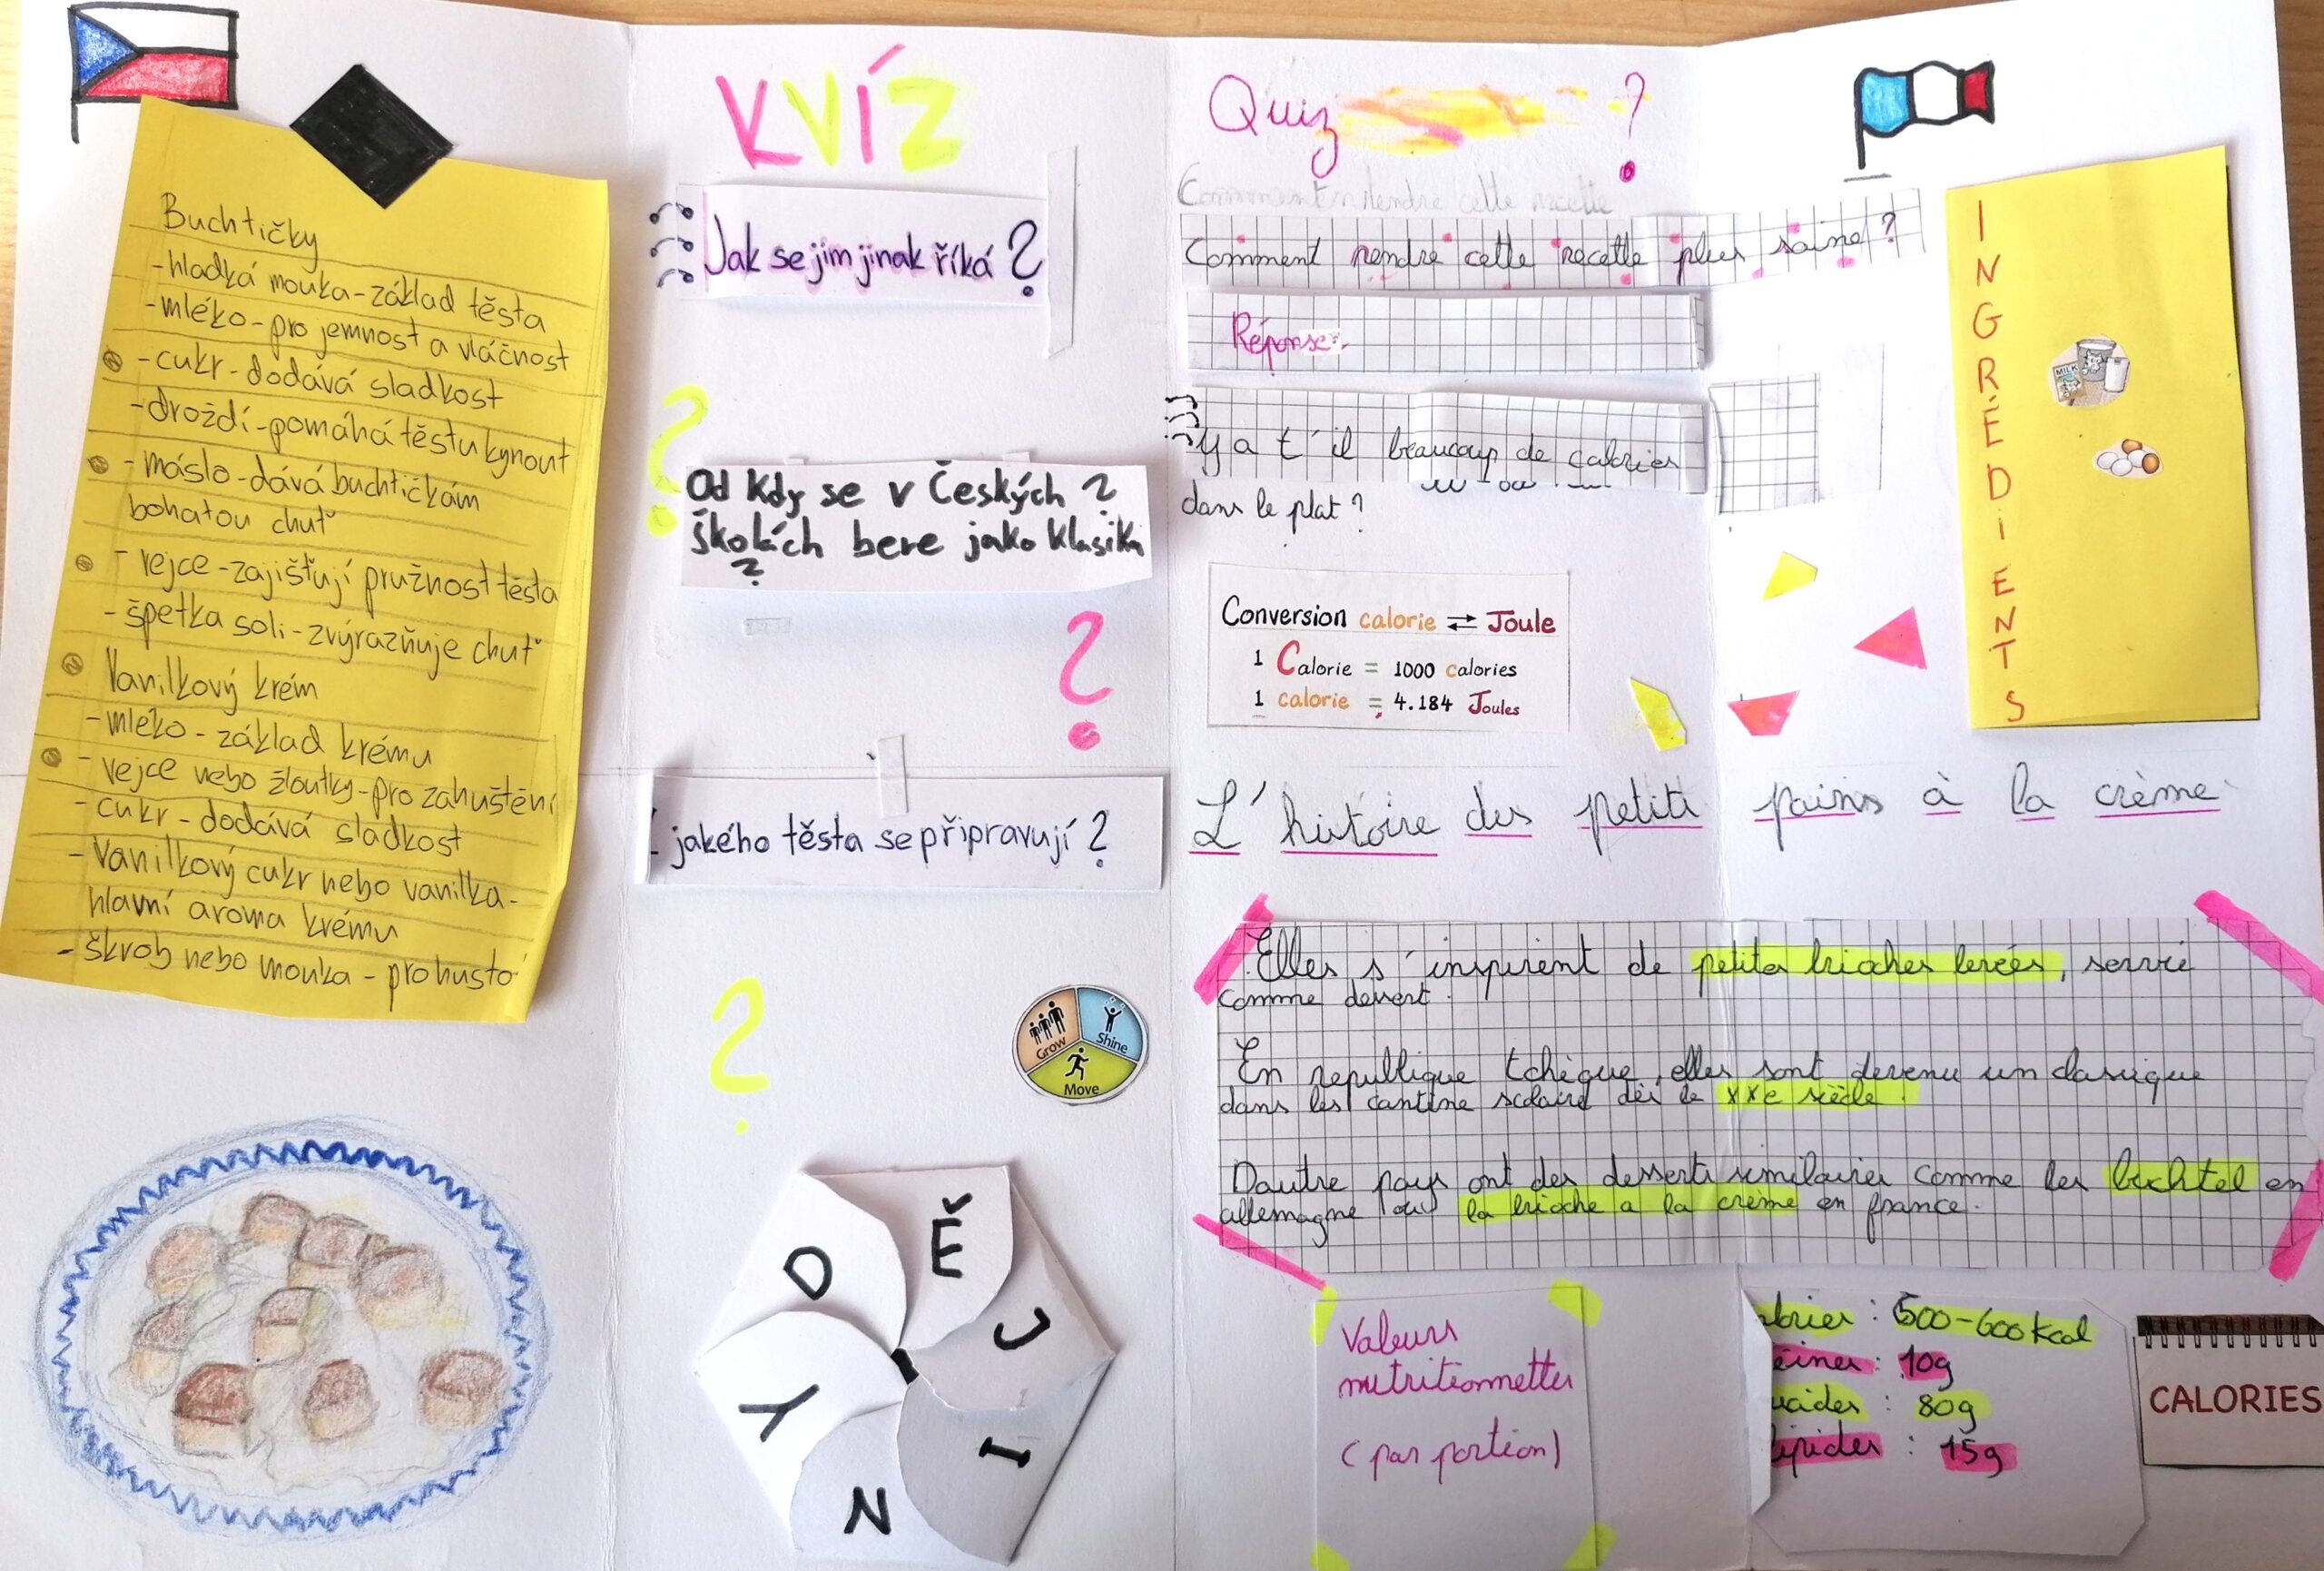 Buchtičky
-hladká mouka-základ těsta
-mléko-pro jemnost a vláčnost
-cukr-dodává sladkost
-droždí-pomáhá těstu kynout
-máslo-dává buchtičkám
bohatou chuť
-vejce-zajišťují pružnost těsta
-špetka soli-zvýrazňuje chuť
Vanilkový krém
-mleko-základ krému
-vejce nebo žloutky-pro zahuštění
-cukr-dodává sladkost
-Vanilkový cukr nebo vanilka-
hlavní aroma krému
-škrob nebo mouka-pro husto
KVÍZ
Jak se jim jinak říká?
?
Od kdy se v Českých ?
školách bere jako klasika
?
?
jakého těsta se připravují?
?
Grow
Shine
Move
D
Ě
J
I
N
Y
Quiz ?
Comment rendre cette recette
Comment rendre cette recette plus saine?
Réponse:
y a t'il beaucoup de calories
dans le plat?
Conversion calorie ⇄ Joule
1 Calorie = 1000 calories
1 calorie = 4.184 Joules
INGRÉDiENTS
MILK
L'histoire des petits pains à la crème
Elles s'inspirent de petites brioches levées, servie
comme dessert.
En republique tchèque, elles sont devenu un classique
dans les cantine scolaire dès le XXe siècle.
Dautre pays ont des desserts similaires comme les buchtel en
allemagne ou la brioche a la crème en france.
Valeurs
nutritionnettes
(par portion)
lories : 500-600 kcal
éines : 10g
ucides : 80g
lipides : 15g
CALORIES